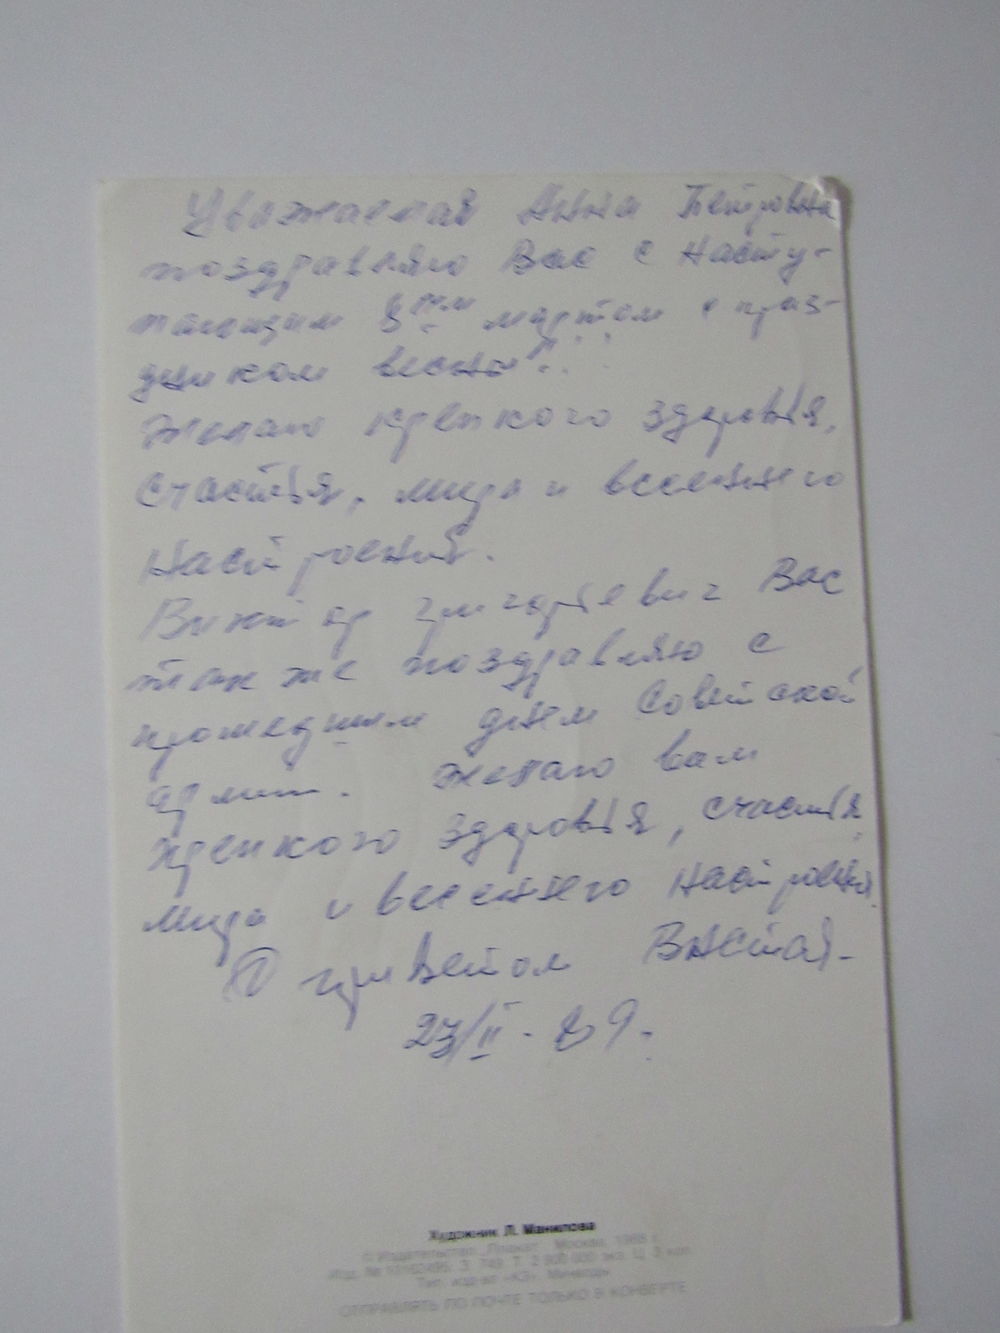 Уважаемая Анна Петровна
поздравляю Вас с насту-
пающим 8ым мартом с праз-
дником весны!!!
Желаю крепкого здоровья,
счастья, мира и весеннего
настроения.
Виктор Григорьевич Вас
так же поздравляю с
прошедшим днем Советской
армии. Желаю вам
крепкого здоровья, счастья,
мира и весеннего настроения.
С приветом
23/II - 89.
Художник Л. Манилова
© Издательство „Плакат“. Москва, 1988 г.
Изд. № З. 749. Т. 2 800 000 экз. Ц. 3 коп.
Тип. изд-ва
ОТПРАВЛЯТЬ ПО ПОЧТЕ ТОЛЬКО В КОНВЕРТЕ